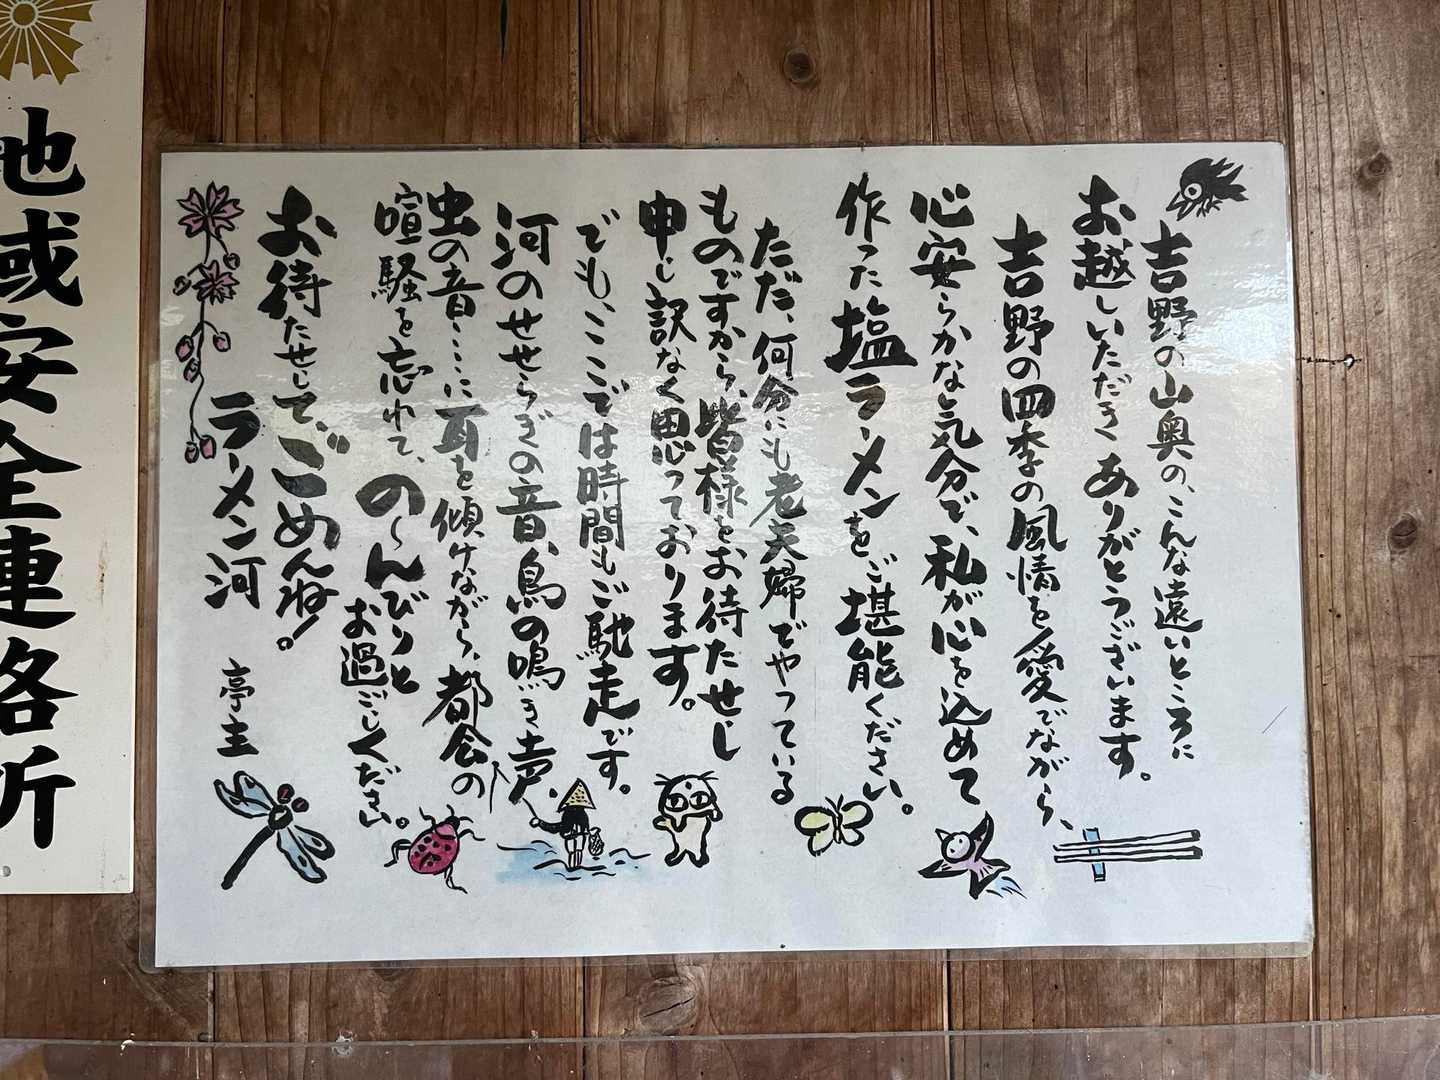 吉野の山奥の、こんな遠いところに
お越しいただきありがとうございます。
吉野の四季の風情を愛でながら、
心安らかな気分で、私が心を込めて
作った塩ラーメンをご堪能ください。
ただ、何分にも老夫婦でやっている
ものですから、皆様をお待たせし
申し訳なく思っております。
でも、ここでは時間もご馳走です。
河のせせらぎの音、鳥の鳴き声、
虫の音……に耳を傾けながら、都会の
喧騒を忘れて、の〜んびりと
お過ごしください。
お待たせしてごめんね!
ラーメン河 亭主
地域安全連絡所